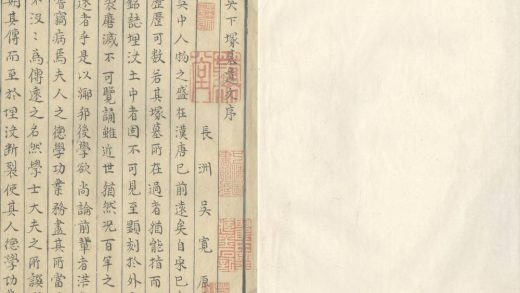 吳下塚墓遺文序
長洲吳寬原
吳中人物之盛在漢唐已前遠矣自宋已
歷歷可數若其塚墓所在過者猶能指而
銘誌埋沒土中者固不可見至顯刻於外
裂磨滅不可覽誦雖近世猶然況百年之
遠者乎是以鄉邦後學欲尚論前輩者茫
嘗竊病焉夫人之德學功業務盡其所當
不汲〻爲傳遠之名然學士大夫之所譔
期其傳而至於埋沒斷裂使其人德學功